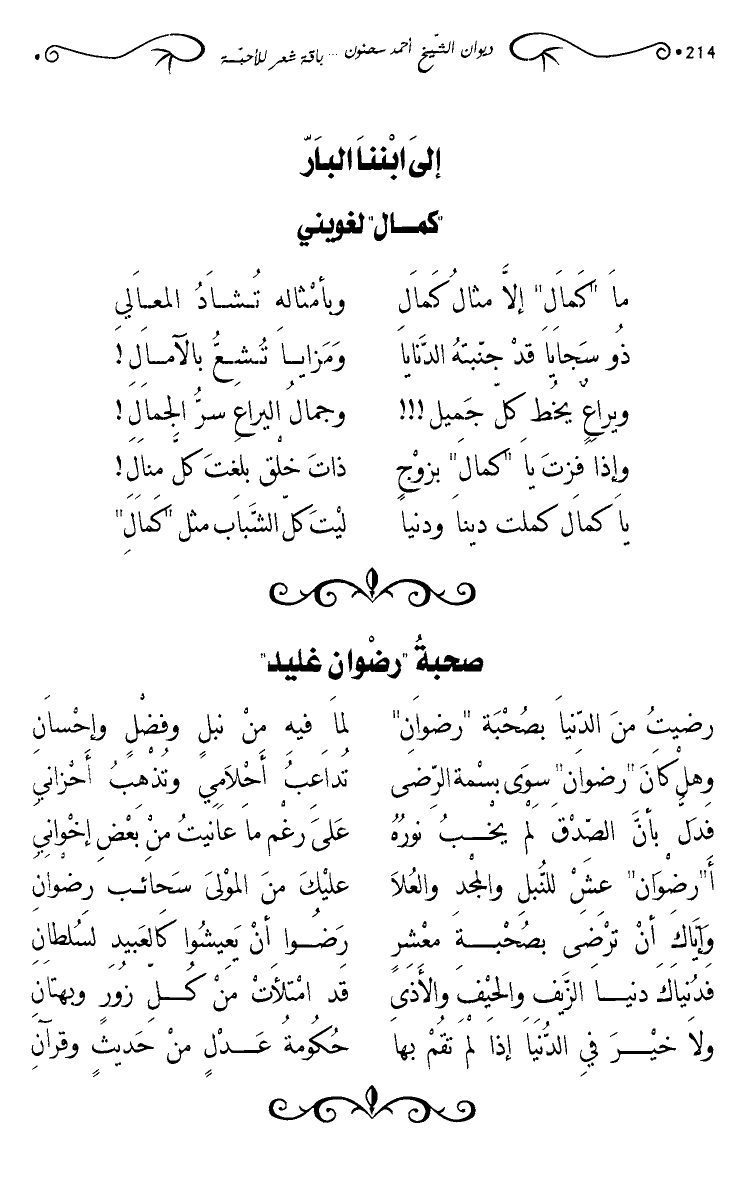 214 ديوان الشيخ أحمد سحنون ... باقة شعر للأحبّة
إلىَ ابْننَا البارّ
"كمـــال" لغويني
ماَ "كَماَل" إلاَّ مثالُ كَمال وبأمْثاله تُـشـادُ المعـالي
ذُو سَجايَا قدْ جنّبتهُ الدَّنايا وَمَزايـا تُـشعُّ بالآمـالِ!
ويراعٌ يخُط كلّ جَميل!!! وجمالُ اليراعِ سرُّ الجمالِ!
وإذا فزتَ ياَ "كمال" بزوْجٍ ذاتَ خلْق بلغتَ كلَّ منال!
ياَ كمال كملت ديناً ودنياَ ليْتَ كلّ الشَّباب مثل "كَمالِ"
صحبةُ "رضْوان غليد"
رضيتُ منَ الدّنياَ بصُحْبَة "رضوانِ" لماَ فيه منْ نبلٍ وفضْلٍ وإحْسانِ
وهلْ كانَ "رضوان" سوَى بسْمة الرّضى تُداعبُ أحْلامِي وتُذْهبُ أحْزاني
فدلّ بأنَّ الصّدْقَ لمْ يخْـــبُ نورُهُ علىَ رغْم ما عانيتُ منْ بعْضِ إخْواني
أَ"رضْوَان" عشْ للنُّبل والمجْد والعُلاَ عليْكَ منَ الموْلىَ سَحائـب رضْوانِ
وَإيّاكَ أنْ ترْضَى بصُحْبـــةِ معْشرٍ رَضُـــوا أنْ يَعيشُوا كَالعَبيد لسُلْطانِ
فدُنياكَ دنيـــا الزّيفِ والحيْفِ والأذَى قد امْتلأتْ منْ كُـــلِّ زُورٍ وبهتَانِ
ولاَ خيْـــرَ في الدُّنْيَا إذا لمْ تقُمْ بهاَ حُكُومةُ عَـــدْلٍ منْ حَديثٍ وقرآنِ